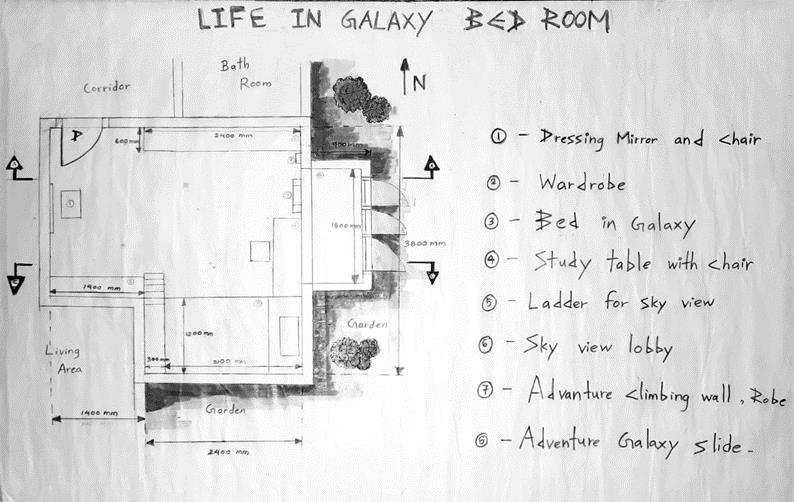 LIFE IN GALAXY BED ROOM
Corridor
Bath
Room
N
D
600 mm
2400 mm
900 mm
1800 mm
3800 mm
1400 mm
1200 mm
300 mm
Garden
Living
Area
1400 mm
Garden
2400 mm
① - Dressing Mirror and chair
② - Wardrobe
③ - Bed in Galaxy
④ - Study table with chair
⑤ - Ladder for sky view
⑥ - Sky view lobby
⑦ - Advanture climbing wall, Robe
⑧ - Adventure Galaxy slide.